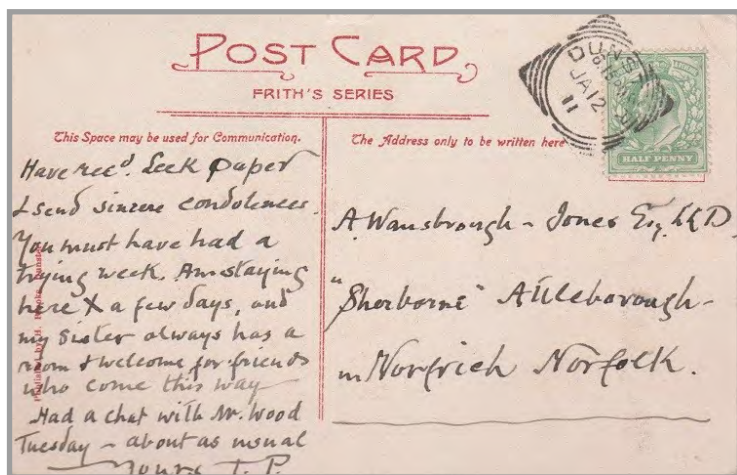 POST CARD
FRITH'S SERIES
This Space may be used for Communication.
The Address only to be written here
DUNST
JA 12
11
HALF PENNY
Have recd. Leek paper
& send sincere condolences.
You must have had a
trying week. Am staying
here X a few days, and
my Sister always has a
room & welcome for friends
who come this way
Had a chat with Mr. Wood
Tuesday ~ about as usual
Yours T. P.
A. Wansbrough-Jones Esq. LLD
"Sherborne" Attleborough-
Norwich Norfolk.